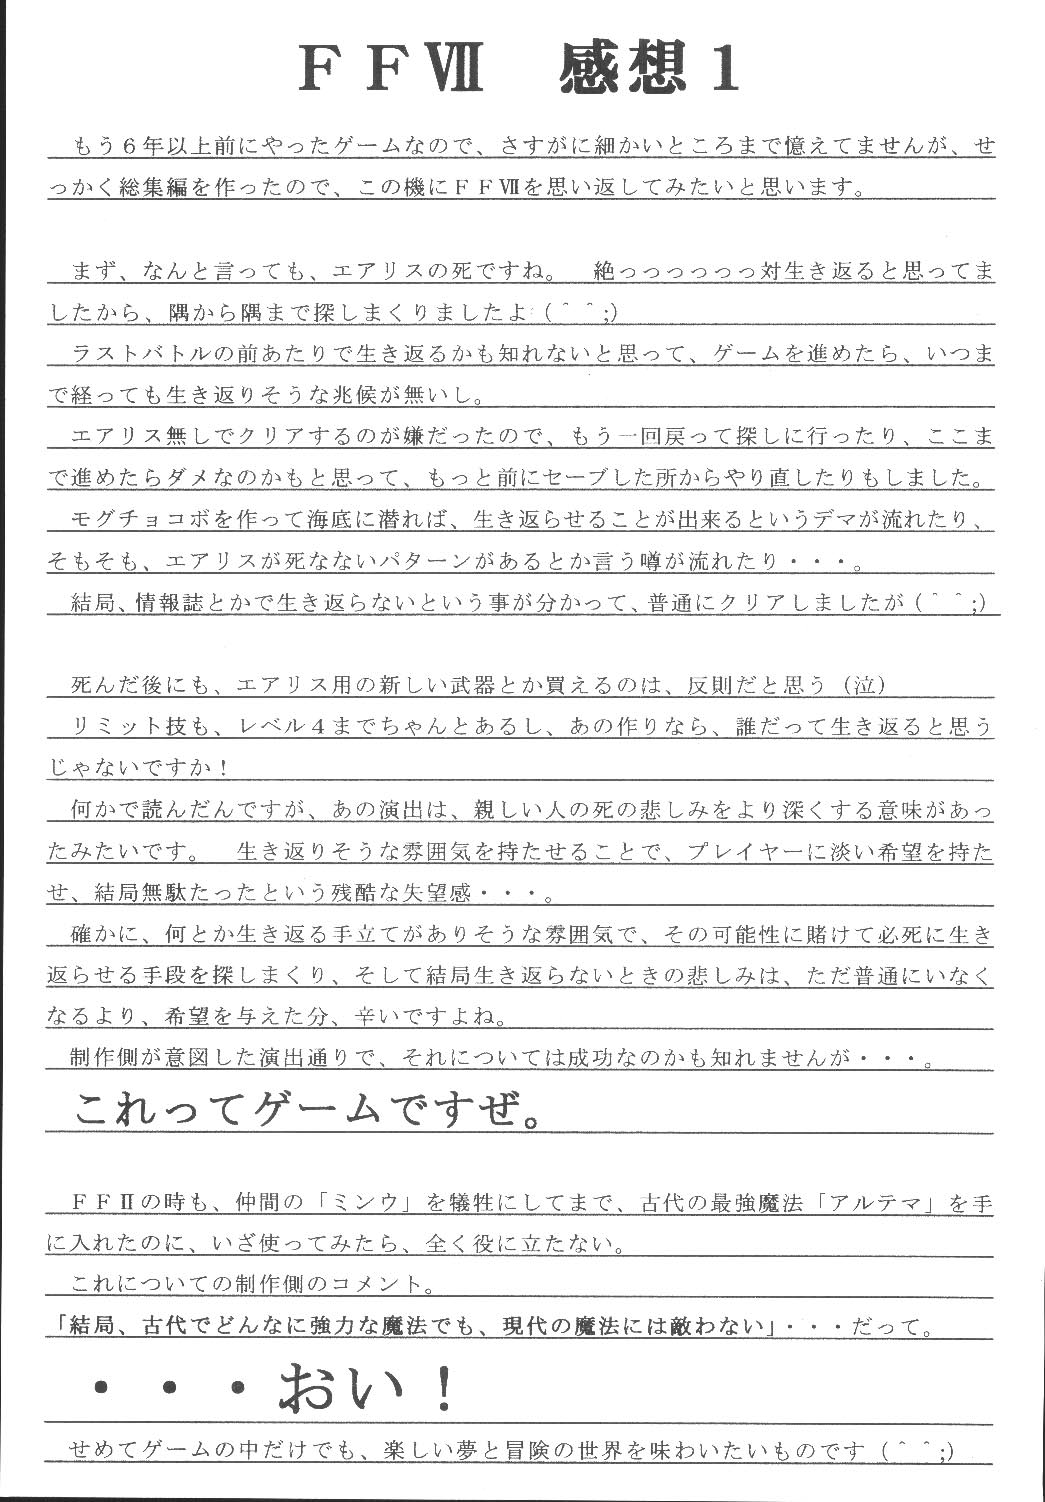 ＦＦⅦ　感想１
もう６年以上前にやったゲームなので、さすがに細かいところまで憶えてませんが、せ
っかく総集編を作ったので、この機にＦＦⅦを思い返してみたいと思います。
まず、なんと言っても、エアリスの死ですね。　絶っっっっっっ対生き返ると思ってま
したから、隅から隅まで探しまくりましたよ（＾＾;）
ラストバトルの前あたりで生き返るかも知れないと思って、ゲームを進めたら、いつま
で経っても生き返りそうな兆候が無いし。
エアリス無しでクリアするのが嫌だったので、もう一回戻って探しに行ったり、ここま
で進めたらダメなのかもと思って、もっと前にセーブした所からやり直したりもしました。
モグチョコボを作って海底に潜れば、生き返らせることが出来るというデマが流れたり、
そもそも、エアリスが死なないパターンがあるとか言う噂が流れたり・・・。
結局、情報誌とかで生き返らないという事が分かって、普通にクリアしましたが（＾＾;）
死んだ後にも、エアリス用の新しい武器とか買えるのは、反則だと思う（泣）
リミット技も、レベル４までちゃんとあるし、あの作りなら、誰だって生き返ると思う
じゃないですか！
何かで読んだんですが、あの演出は、親しい人の死の悲しみをより深くする意味があっ
たみたいです。　生き返りそうな雰囲気を持たせることで、プレイヤーに淡い希望を持た
せ、結局無駄たったという残酷な失望感・・・。
確かに、何とか生き返る手立てがありそうな雰囲気で、その可能性に賭けて必死に生き
返らせる手段を探しまくり、そして結局生き返らないときの悲しみは、ただ普通にいなく
なるより、希望を与えた分、辛いですよね。
制作側が意図した演出通りで、それについては成功なのかも知れませんが・・・。
これってゲームですぜ。
ＦＦⅡの時も、仲間の「ミンウ」を犠牲にしてまで、古代の最強魔法「アルテマ」を手
に入れたのに、いざ使ってみたら、全く役に立たない。
これについての制作側のコメント。
「結局、古代でどんなに強力な魔法でも、現代の魔法には敵わない」・・・だって。
・・・おい！
せめてゲームの中だけでも、楽しい夢と冒険の世界を味わいたいものです（＾＾;）